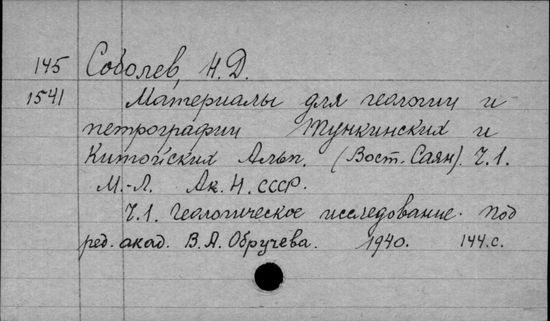 145 Соболев, Н.Д.
1541 Материалы для геологии и
петрографии Тункинских и
Китойских Альп. (Вост. Саян). Ч.1.
М.-Л. Ак. Н. СССР.
Ч.1. Геологическое исследование. Под
ред. акад. В.А. Обручева. 1940. 144.с.